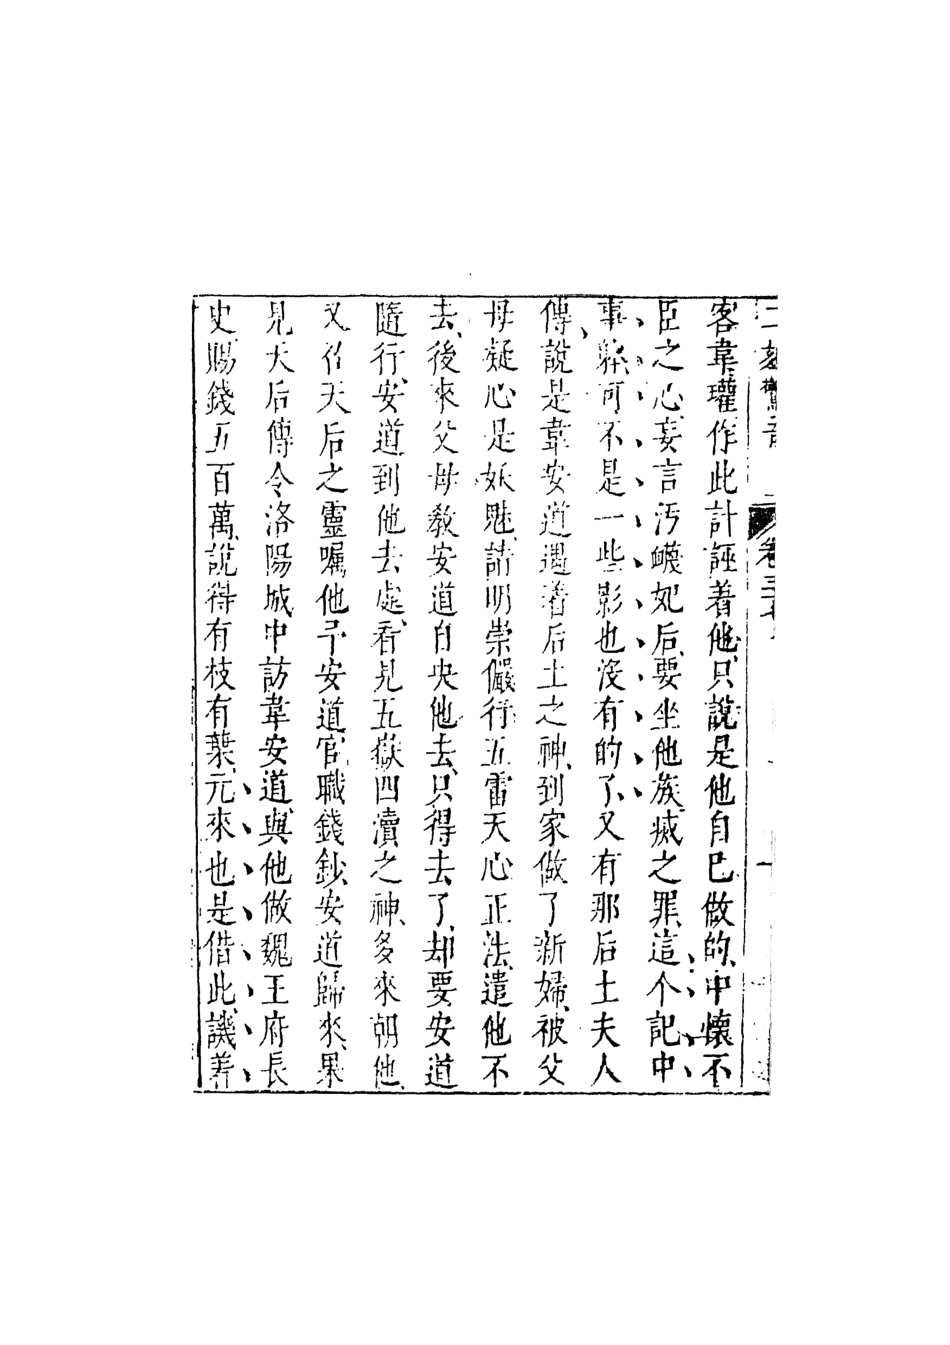 二刻驚奇 卷三十七
客韋瓘作此計誣着他只說是他自己做的中懷不
臣之心妄言汚衊妃后要坐他族滅之罪這个記中
事躰可不是一些影也沒有的了又有那后土夫人
傳說是韋安道遇着后土之神到家做了新婦被父
母疑心是妖魅請明崇儼行五雷天心正法遣他不
去後來父母教安道自央他去只得去了却要安道
隨行安道到他去處看見五嶽四瀆之神多來朝他
又召天后之靈囑他予安道官職錢鈔安道歸來果
見天后傳令洛陽城中訪韋安道與他做魏王府長
史賜錢五百萬說得有枝有葉元來也是借此譏着